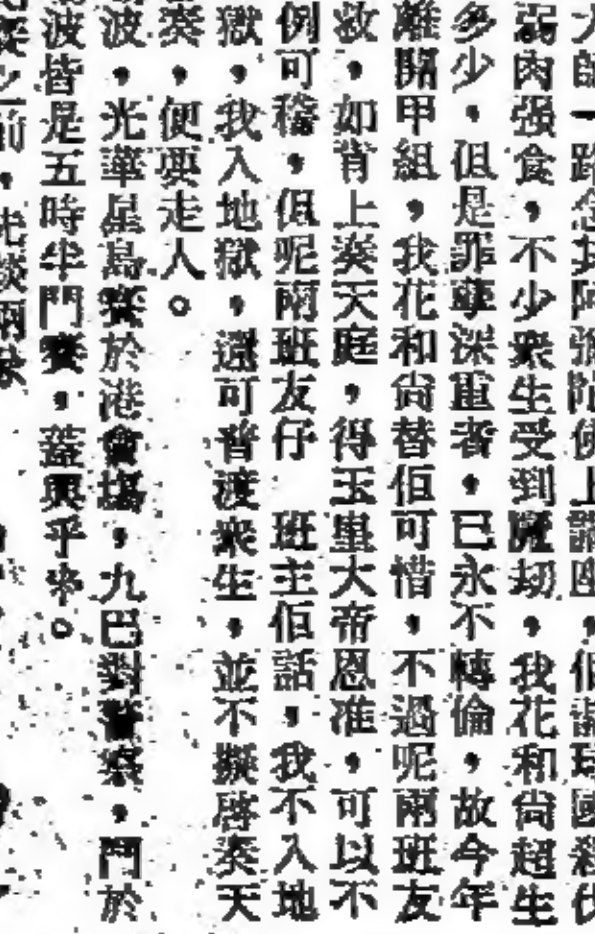 大師一路念其阿彌陀佛上講座，個講球國殺伐
弱肉强食，不少衆生受到魔刼，我花和尙超生
多少，但是罪孽深重者，已永不轉倫，故今年
離開甲組，我花和尙替佢可惜，不過呢兩班友
敌，如肯上奏天庭，得玉皇大帝恩准，可以不
例可稽，但呢兩班友仔　班主佢話，我不入地
獄，我入地獄，還可普渡衆生，並不擬啓奏天
奏，便要走人。
波，光華星島賽於港會塲，九巴對警察，鬥於
波皆是五時半鬥賽，蓋興乎來。
之前，先談兩